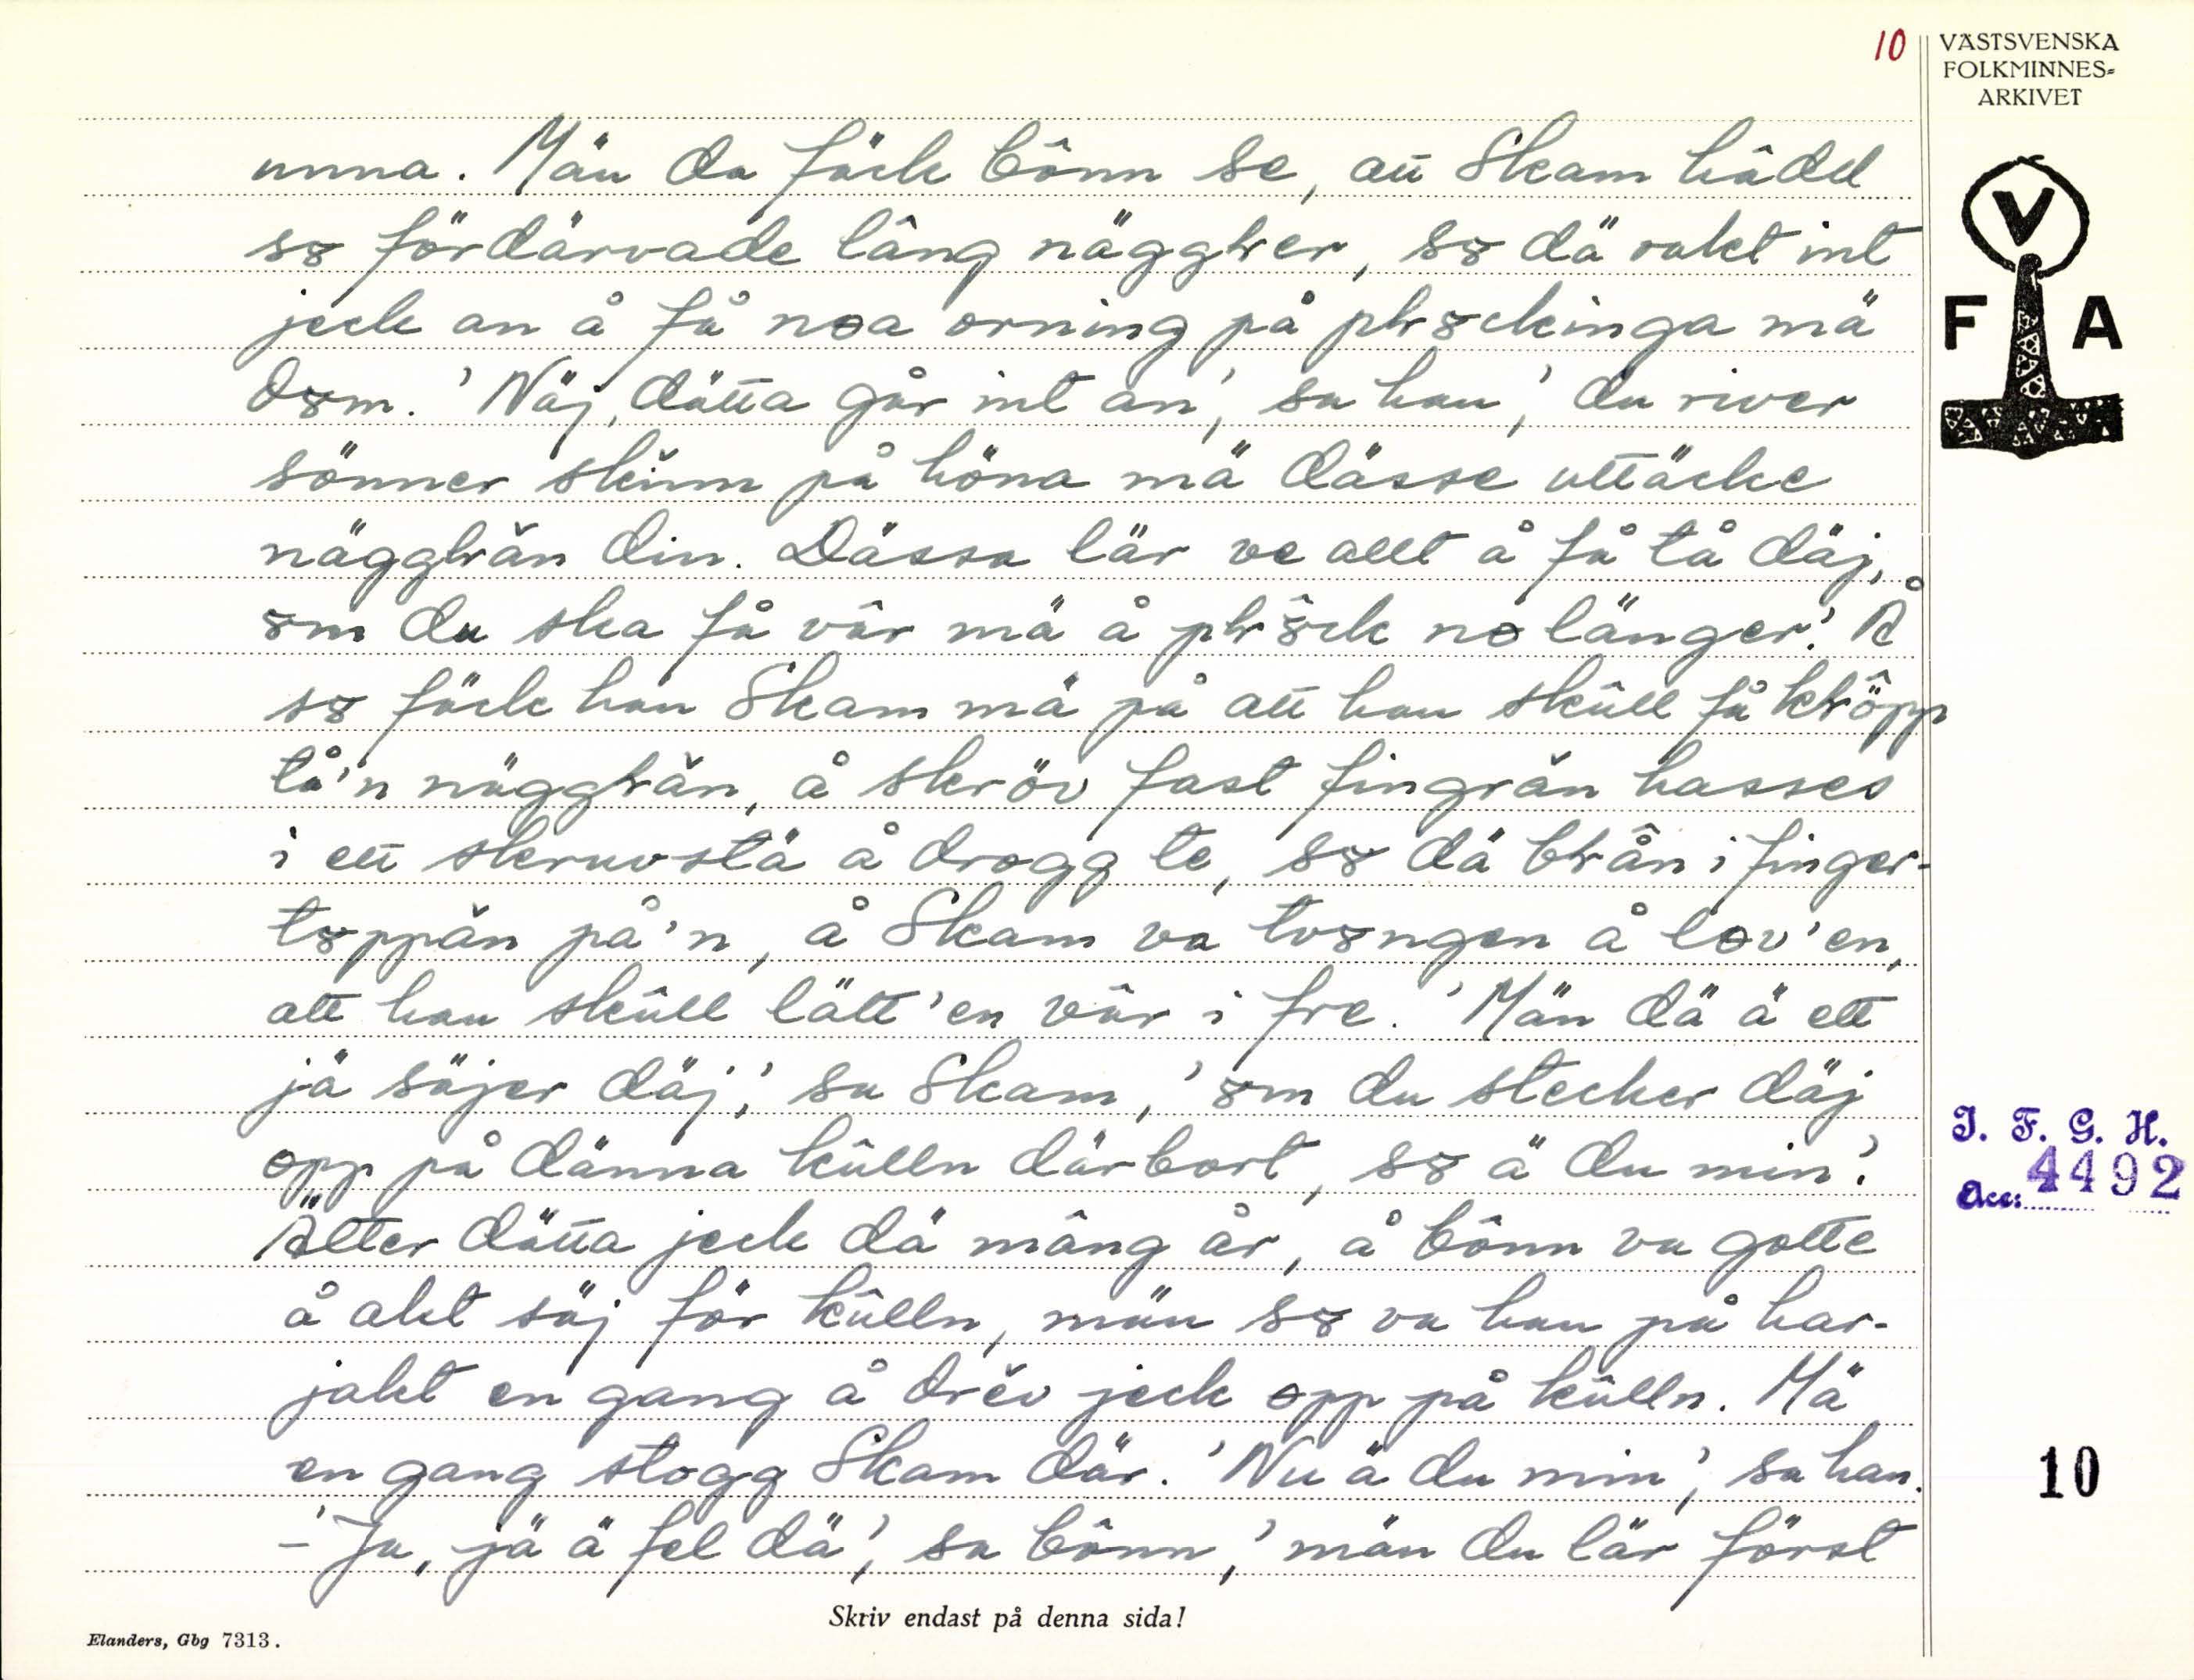 10
VÄSTSVENSKA
FOLKMINNES=
ARKIVET
V
F A
unna. Män da fäck bônn se, att Skam hâdd
sꝏ fördärvade lâng nägghrer, sꝏ dä rakt int
jeck an å få nɵa orning på phrꝏckinga mä
dꝏm. 'Näj, dätta går int an', sa han, 'du river
sönner skinn på höna mä dässe uttäcke
nägghrăn din. Dässa lär ve allt å få tå däj,
ꝏm du ska få vâr mä å phrꝏ̂ck nɵ länger.' Å
sꝏ fäck han Skam mä på att han skûll få khrôpp
tå'n nägghrăn, å skröv fast fingrăn hasses
i ett skruvstä å drogg te, sꝏ dä bhrân i finger-
tꝏppăn på'n, å Skam va tvꝏngen å lɵv'en,
att han skûll lätt'en vâr i fre. 'Män dä ä ett
jä säjer däj,' sa Skam, 'ꝏm du stecker däj
ɵpp på dänna kûlln därbort, sꝏ ä du min.'
Ätter dätta jeck dä mâng år, å bônn va gotte
å akt säj för kûlln, män sꝏ va han på har-
jakt en gang å drĕv jeck ɵpp på kûlln. Mä
en gang stogg Skam där. 'Nu ä du min', sa han.
- 'Ja, jä ä fel dä', sa bônn, 'män du lär först
I. F. G. H.
Acc: 4492
10
Skriv endast på denna sida!
Elanders, Gbg 7313.